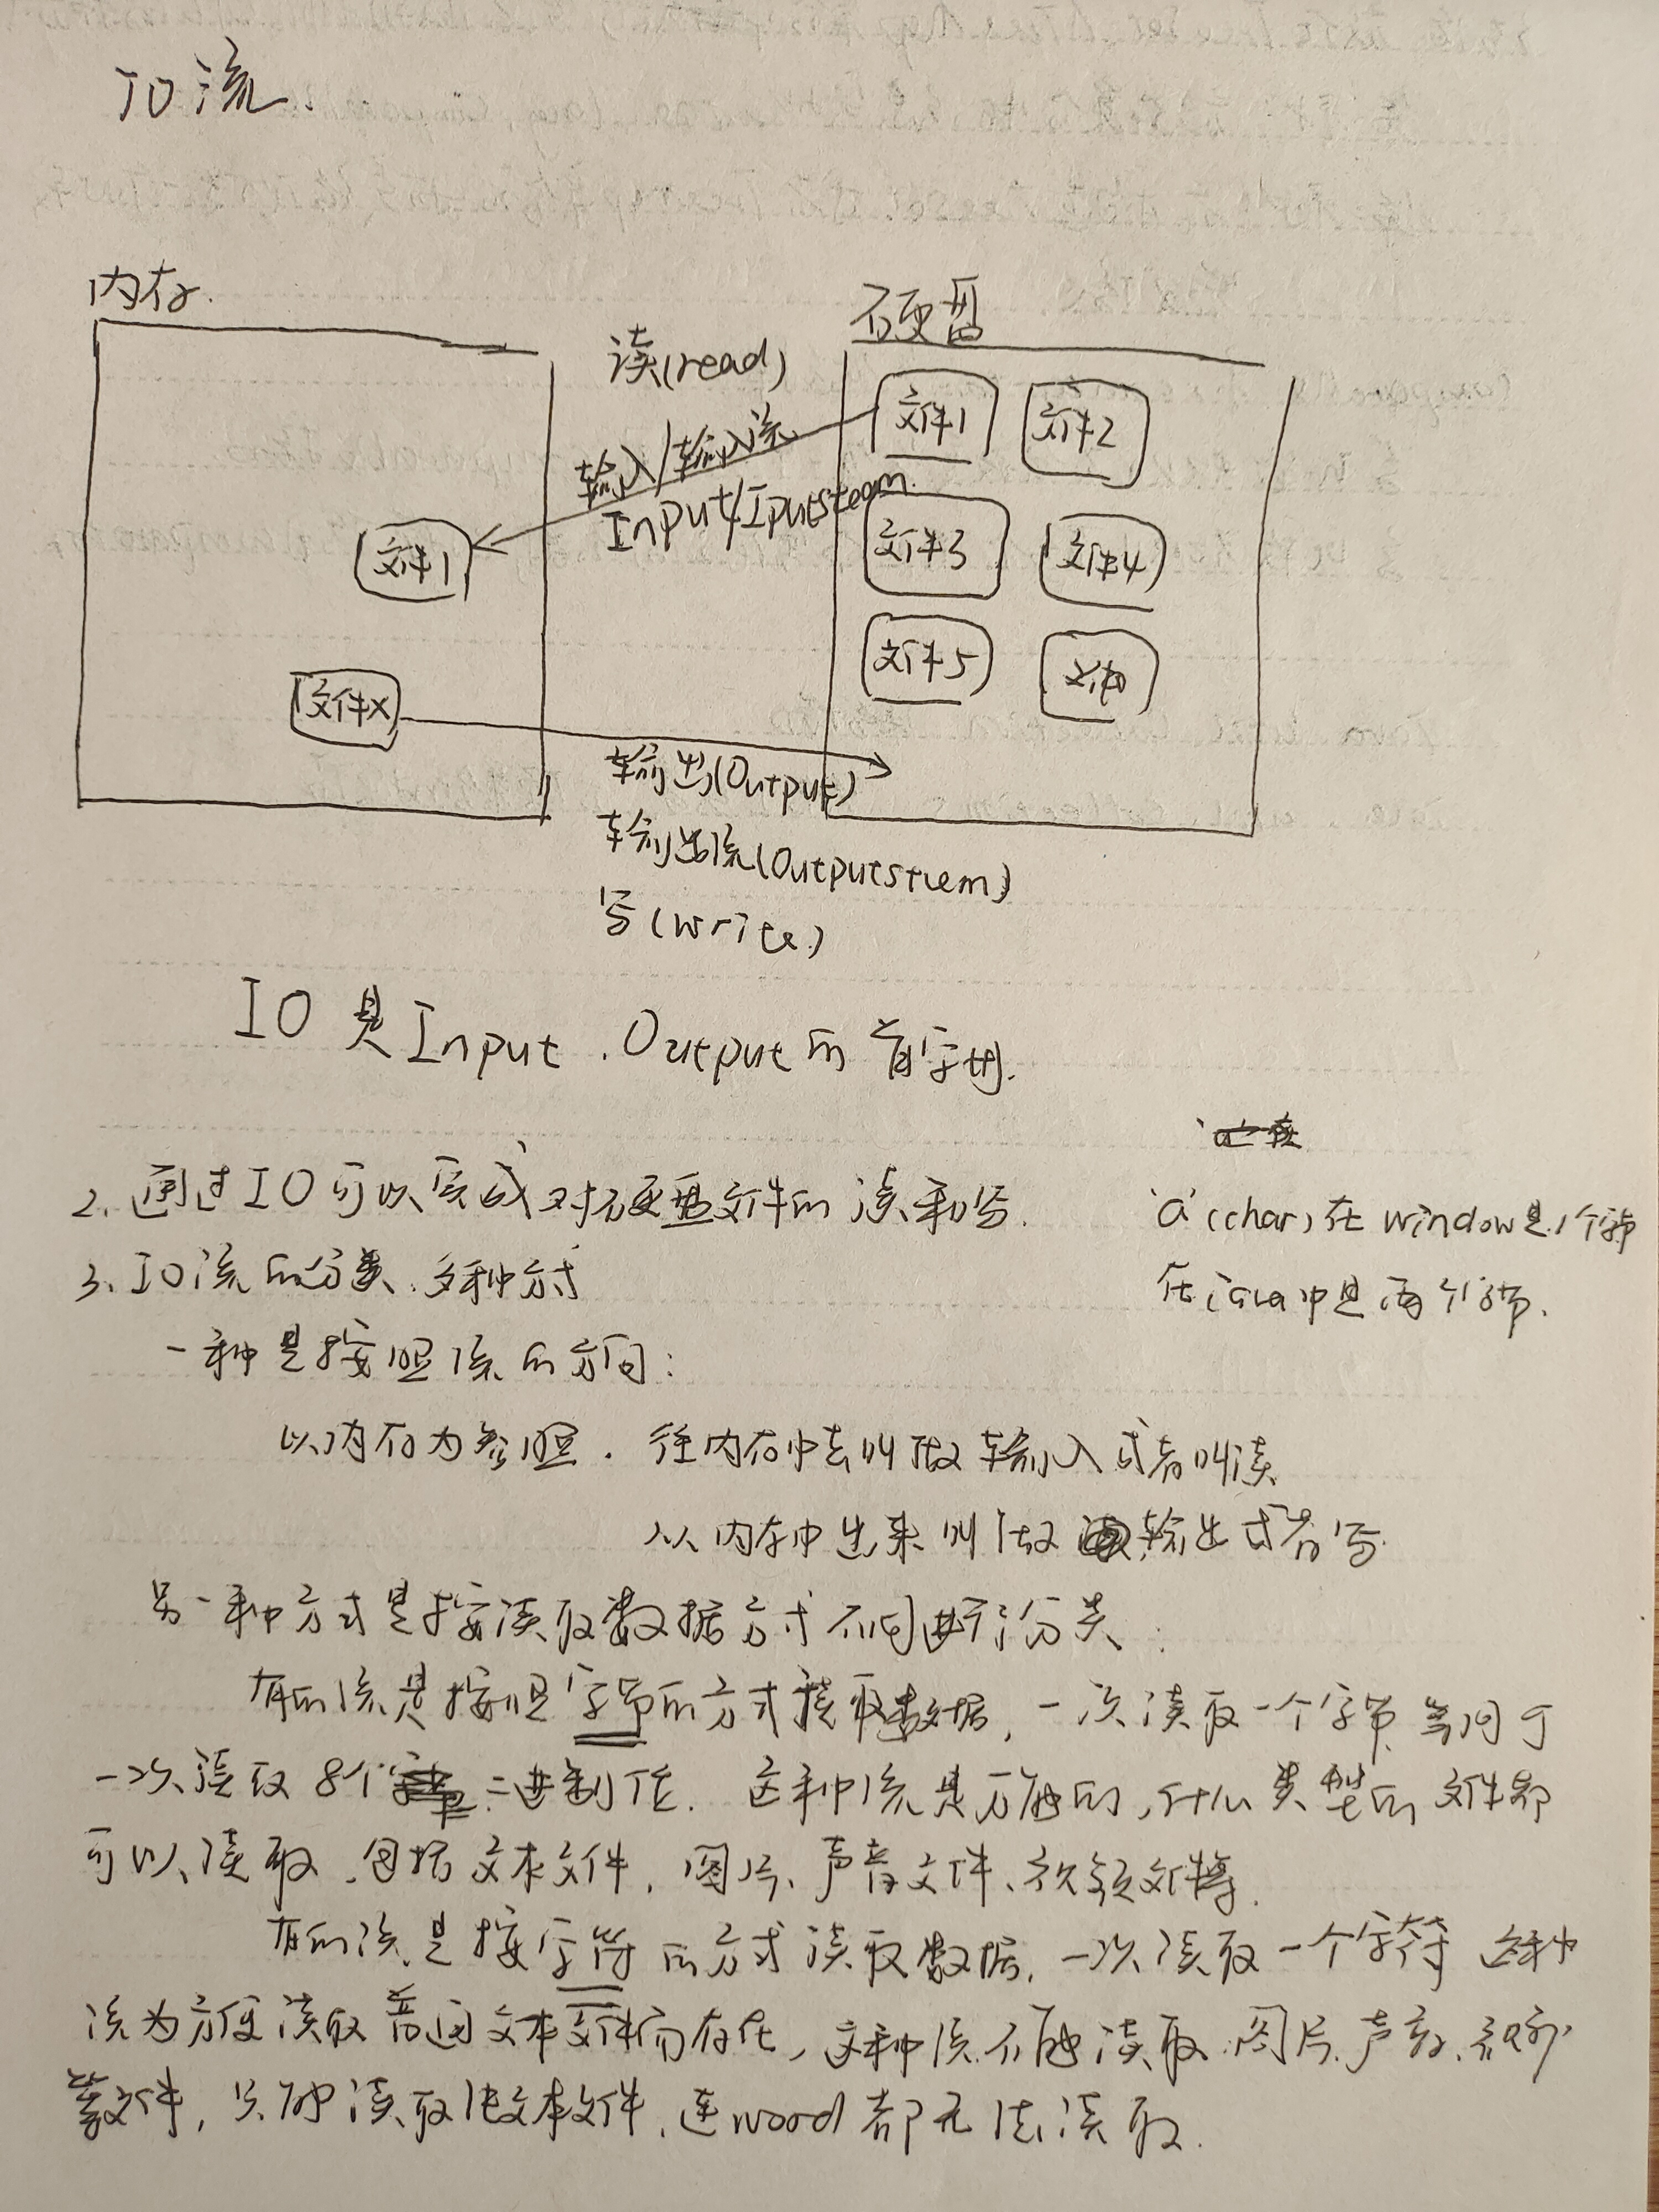 IO流.
内存.
硬盘
读(read)
输入/输入流
Input/Iputsteam.
文件1
文件2
文件3
文件4
文件5
文件1
文件X
输出(Output)
输出流(Outputstrem)
写(write)
IO是Input.Output的首字母.
2、通过IO可以完成对硬盘文件的读和写.
'a'(char)在window是1个字节
在java中是两个字节.
3、IO流的分类.多种方式
一种是按照流的方向:
以内存为参照. 往内存中去叫做输入或者叫读
从内存中出来叫做输出或者写.
另一种方式是按读取数据方式不同进行分类:
有的流是按照字节的方式读取数据,一次读取一个字节 等同于
一次读取8个二进制位. 这种流是万能的,什么类型的文件都
可以读取.包括文本文件.图片、声音文件、视频文件等.
有的流是按字符的方式读取数据,一次读取一个字符 这种
流为方便读取普通文本文件而存在,这种流不能读取.图片.声音.视频
等文件,只能读取纯文本文件.连word都无法读取.